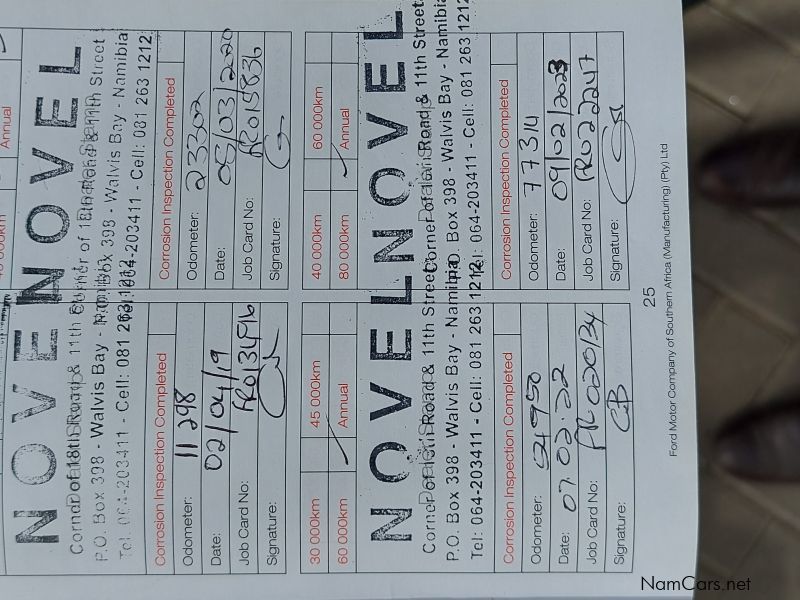 NOVEL
Corner of 18th Road & 11th Street
P.O. Box 398 - Walvis Bay - Namibia
Tel: 064-203411 - Cell: 081 263 1212
Corrosion Inspection Completed
Odometer: 11 298
Date: 02/04/19
Job Card No:
Signature:
Annual
NOVEL
Corner of 18th Road & 11th Street
P.O. Box 398 - Walvis Bay - Namibia
Tel: 064-203411 - Cell: 081 263 1212
Corrosion Inspection Completed
Odometer: 23302
Date: 05/03/2020
Job Card No:
Signature:
30 000km 45 000km
60 000km Annual
NOVEL
Corner of 18th Road & 11th Street
P.O. Box 398 - Walvis Bay - Namibia
Tel: 064-203411 - Cell: 081 263 1212
Corrosion Inspection Completed
Odometer:
Date: 07 02-22
Job Card No:
Signature: CB
40 000km 60 000km
80 000km Annual
NOVEL
Corner of 18th Road & 11th Street
P.O. Box 398 - Walvis Bay - Namibia
Tel: 064-203411 - Cell: 081 263 1212
Corrosion Inspection Completed
Odometer: 77314
Date: 09/02/2023
Job Card No: RO222247
Signature:
25
Ford Motor Company of Southern Africa (Manufacturing) (Pty) Ltd
NamCars.net